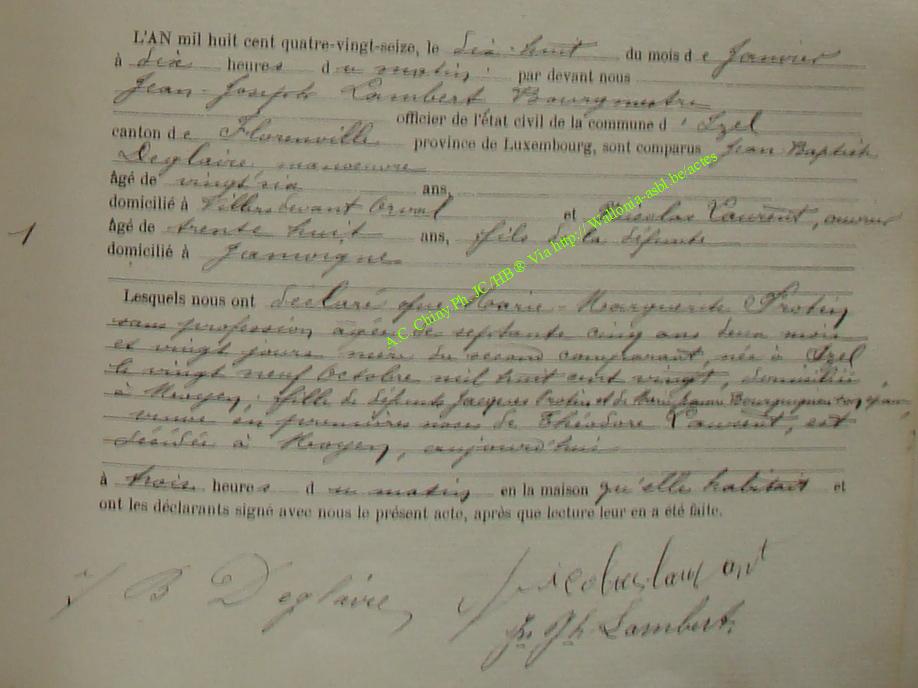 L'AN mil huit cent quatre-vingt-seize, le dix-huit du mois de Janvier
à dix heures du matin par devant nous
Jean-Joseph Lambert Bourgmestre
officier de l'état civil de la commune d'Izel
canton de Florenville province de Luxembourg, sont comparus Jean Baptiste
Deglaire manoeuvre
âgé de vingt six ans,
domicilié à Villers devant Orval et Nicolas Laurent, ouvrier
1 âgé de trente huit ans, fils de la défunte
domicilié à Jamoigne
Lesquels nous ont déclaré que Marie-Marguerite Protin
sans profession âgée de septante cinq ans deux mois
et vingt jours mère du second comparant, née à Izel
le vingt neuf Octobre mil huit cent vingt, domiciliée
à Moyen, fille de défunts Jacques Protin et de Marie Jeanne Bourguignon
veuve en premières noces de Théodore Laurent, est
décédée à Moyen, aujourd'hui
à trois heures du matin en la maison qu'elle habitait et
ont les déclarants signé avec nous le présent acte, après que lecture leur en a été faite.
J B Deglaire Nicolas Laurent
Jn Jh Lambert
A.C. Chiny Ph. JC/HB ® Via http://Wallonia-asbl.be/actes